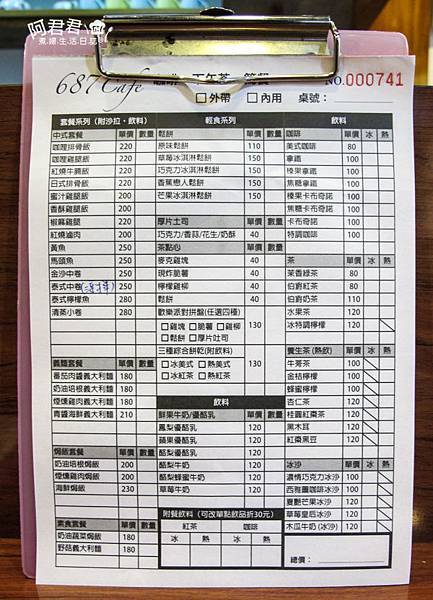 阿君君
煮婦‧生活日誌
687 Cafe
下午茶
NO.000741
□外帶 □內用 桌號：
套餐系列（附沙拉‧飲料）
中式套餐 單價 數量
咖哩排骨飯 220
咖哩雞腿飯 220
紅燒牛腩飯 220
日式排骨飯 220
蜜汁雞腿飯 200
香酥雞腿飯 200
椒麻雞腿 220
紅燒滷肉 200
黃魚 250
馬頭魚 250
金沙中卷 250
泰式中卷 250
泰式檸檬魚 280
清蒸小卷 280
義麵套餐 單價 數量
蕃茄肉醬義大利麵 180
奶油培根義大利麵 180
煙燻雞肉義大利麵 180
青醬海鮮義大利麵 210
焗飯套餐 單價 數量
奶油培根焗飯 200
煙燻雞肉焗飯 200
海鮮焗飯 230
素食套餐 單價 數量
奶油蔬菜焗飯 180
野菇義大利麵 180
輕食系列
鬆餅 單價 數量
原味鬆餅 110
草莓冰淇淋鬆餅 150
巧克力冰淇淋鬆餅 150
香蕉戀人鬆餅 150
芒果冰淇淋鬆餅 150
厚片土司 單價 數量
巧克力/香蒜/花生/奶酥 40
茶點心 單價 數量
麥克雞塊 40
現炸脆薯 40
檸檬雞柳 40
鬆餅 40
歡樂派對拼盤(任選四種)
□雞塊 □脆薯 □雞柳
□鬆餅 □厚片吐司
130
三種綜合餅乾(附飲料)
□冰美式 □熱美式
□冰紅茶 □熱紅茶
130
飲料
鮮果牛奶/優酪乳 單價 數量
鳳梨優酪乳 120
蘋果優酪乳 120
酪梨優酪乳 120
酪梨牛奶 120
酪梨蜂蜜牛奶 120
草莓牛奶 120
附餐飲料（可改單點飲品折30元）
紅茶 咖啡
冰 熱 冰 熱
飲料
咖啡 單價 冰 熱
美式咖啡 80
拿鐵 100
榛果拿鐵 100
焦糖拿鐵 100
榛果卡布奇諾 100
焦糖卡布奇諾 100
卡布奇諾 100
特調咖啡 100
茶 單價 冰 熱
茉香綠茶 80
伯爵紅茶 80
伯爵奶茶 110
水果茶 120
冰特調檸檬 120
養生茶 (熱飲) 單價 冰 熱
牛蒡茶 100
金桔檸檬 100
蜂蜜檸檬 100
杏仁茶 120
桂圓紅棗茶 120
黑木耳 120
紅棗黑豆 120
冰沙 單價 冰 熱
濃情巧克力冰沙 100
西雅圖咖啡冰沙 100
夏艷芒果冰沙 120
草莓皇后冰沙 120
木瓜牛奶 (冰沙) 120
總價：